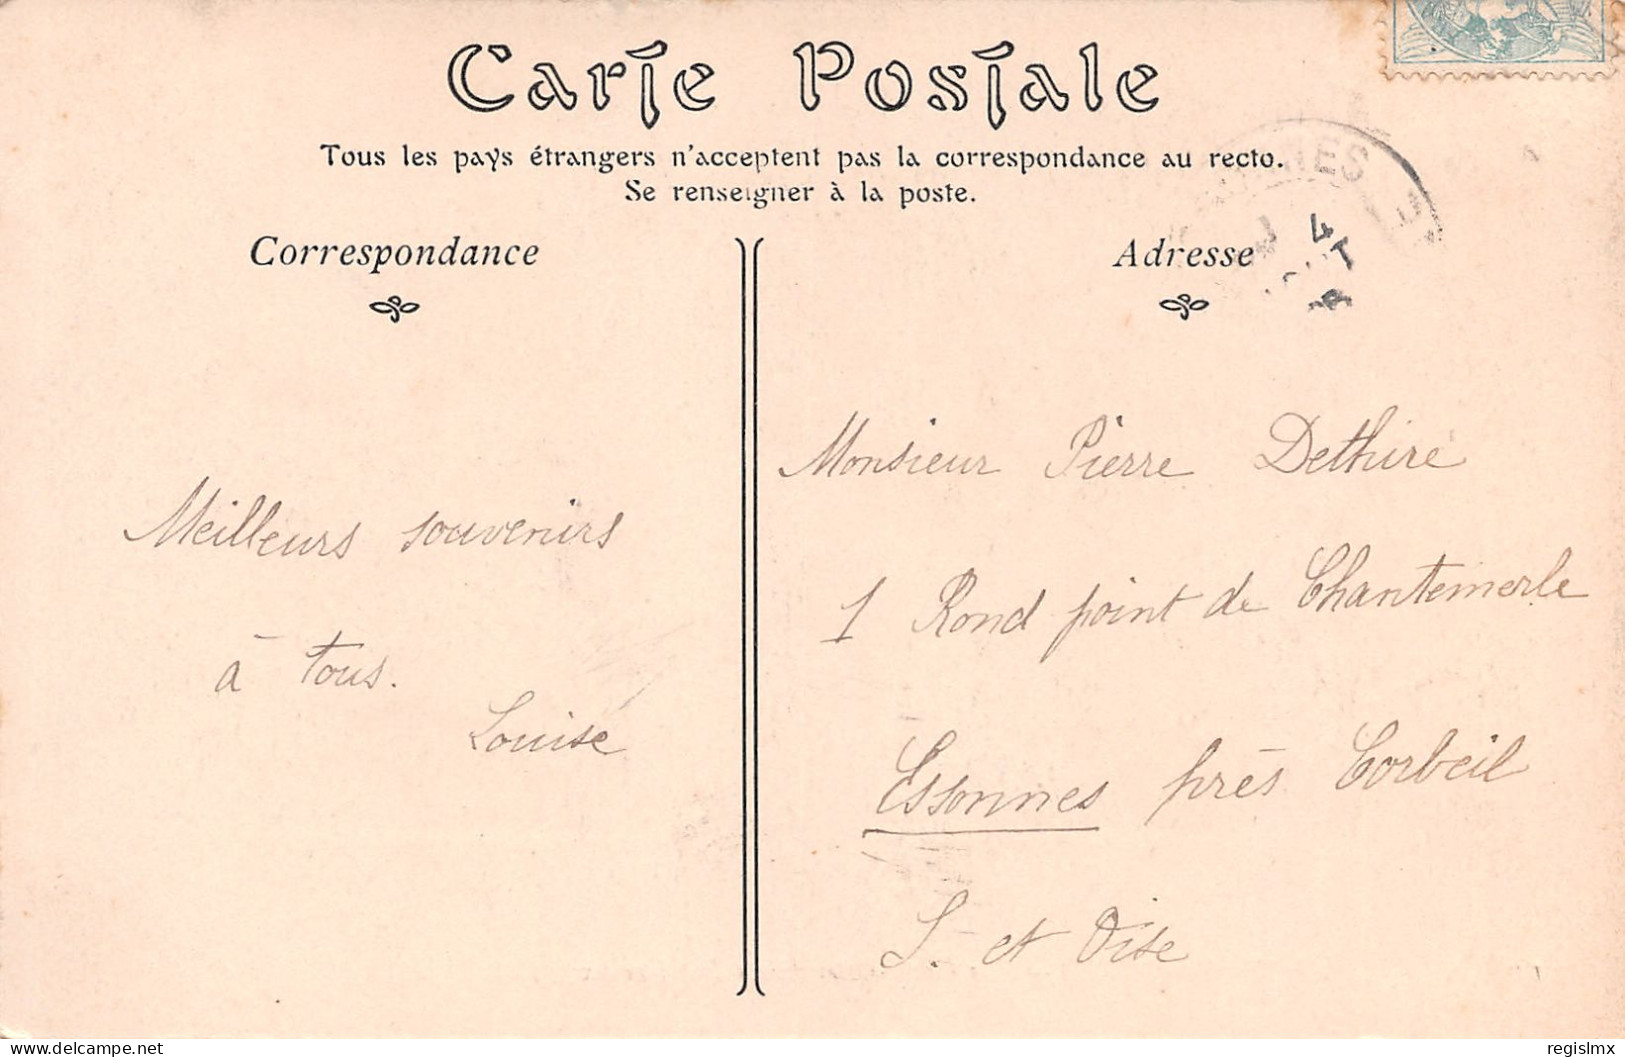 Carte Postale
Tous les pays étrangers n'acceptent pas la correspondance au recto.
Se renseigner à la poste.
Correspondance
Adresse
Meilleurs souvenirs
à tous.
Louise
Monsieur Pierre Dethire
1 Rond point de Chantemerle
Essonnes près Corbeil
S. et Oise
4
delcampe.net
regislmx